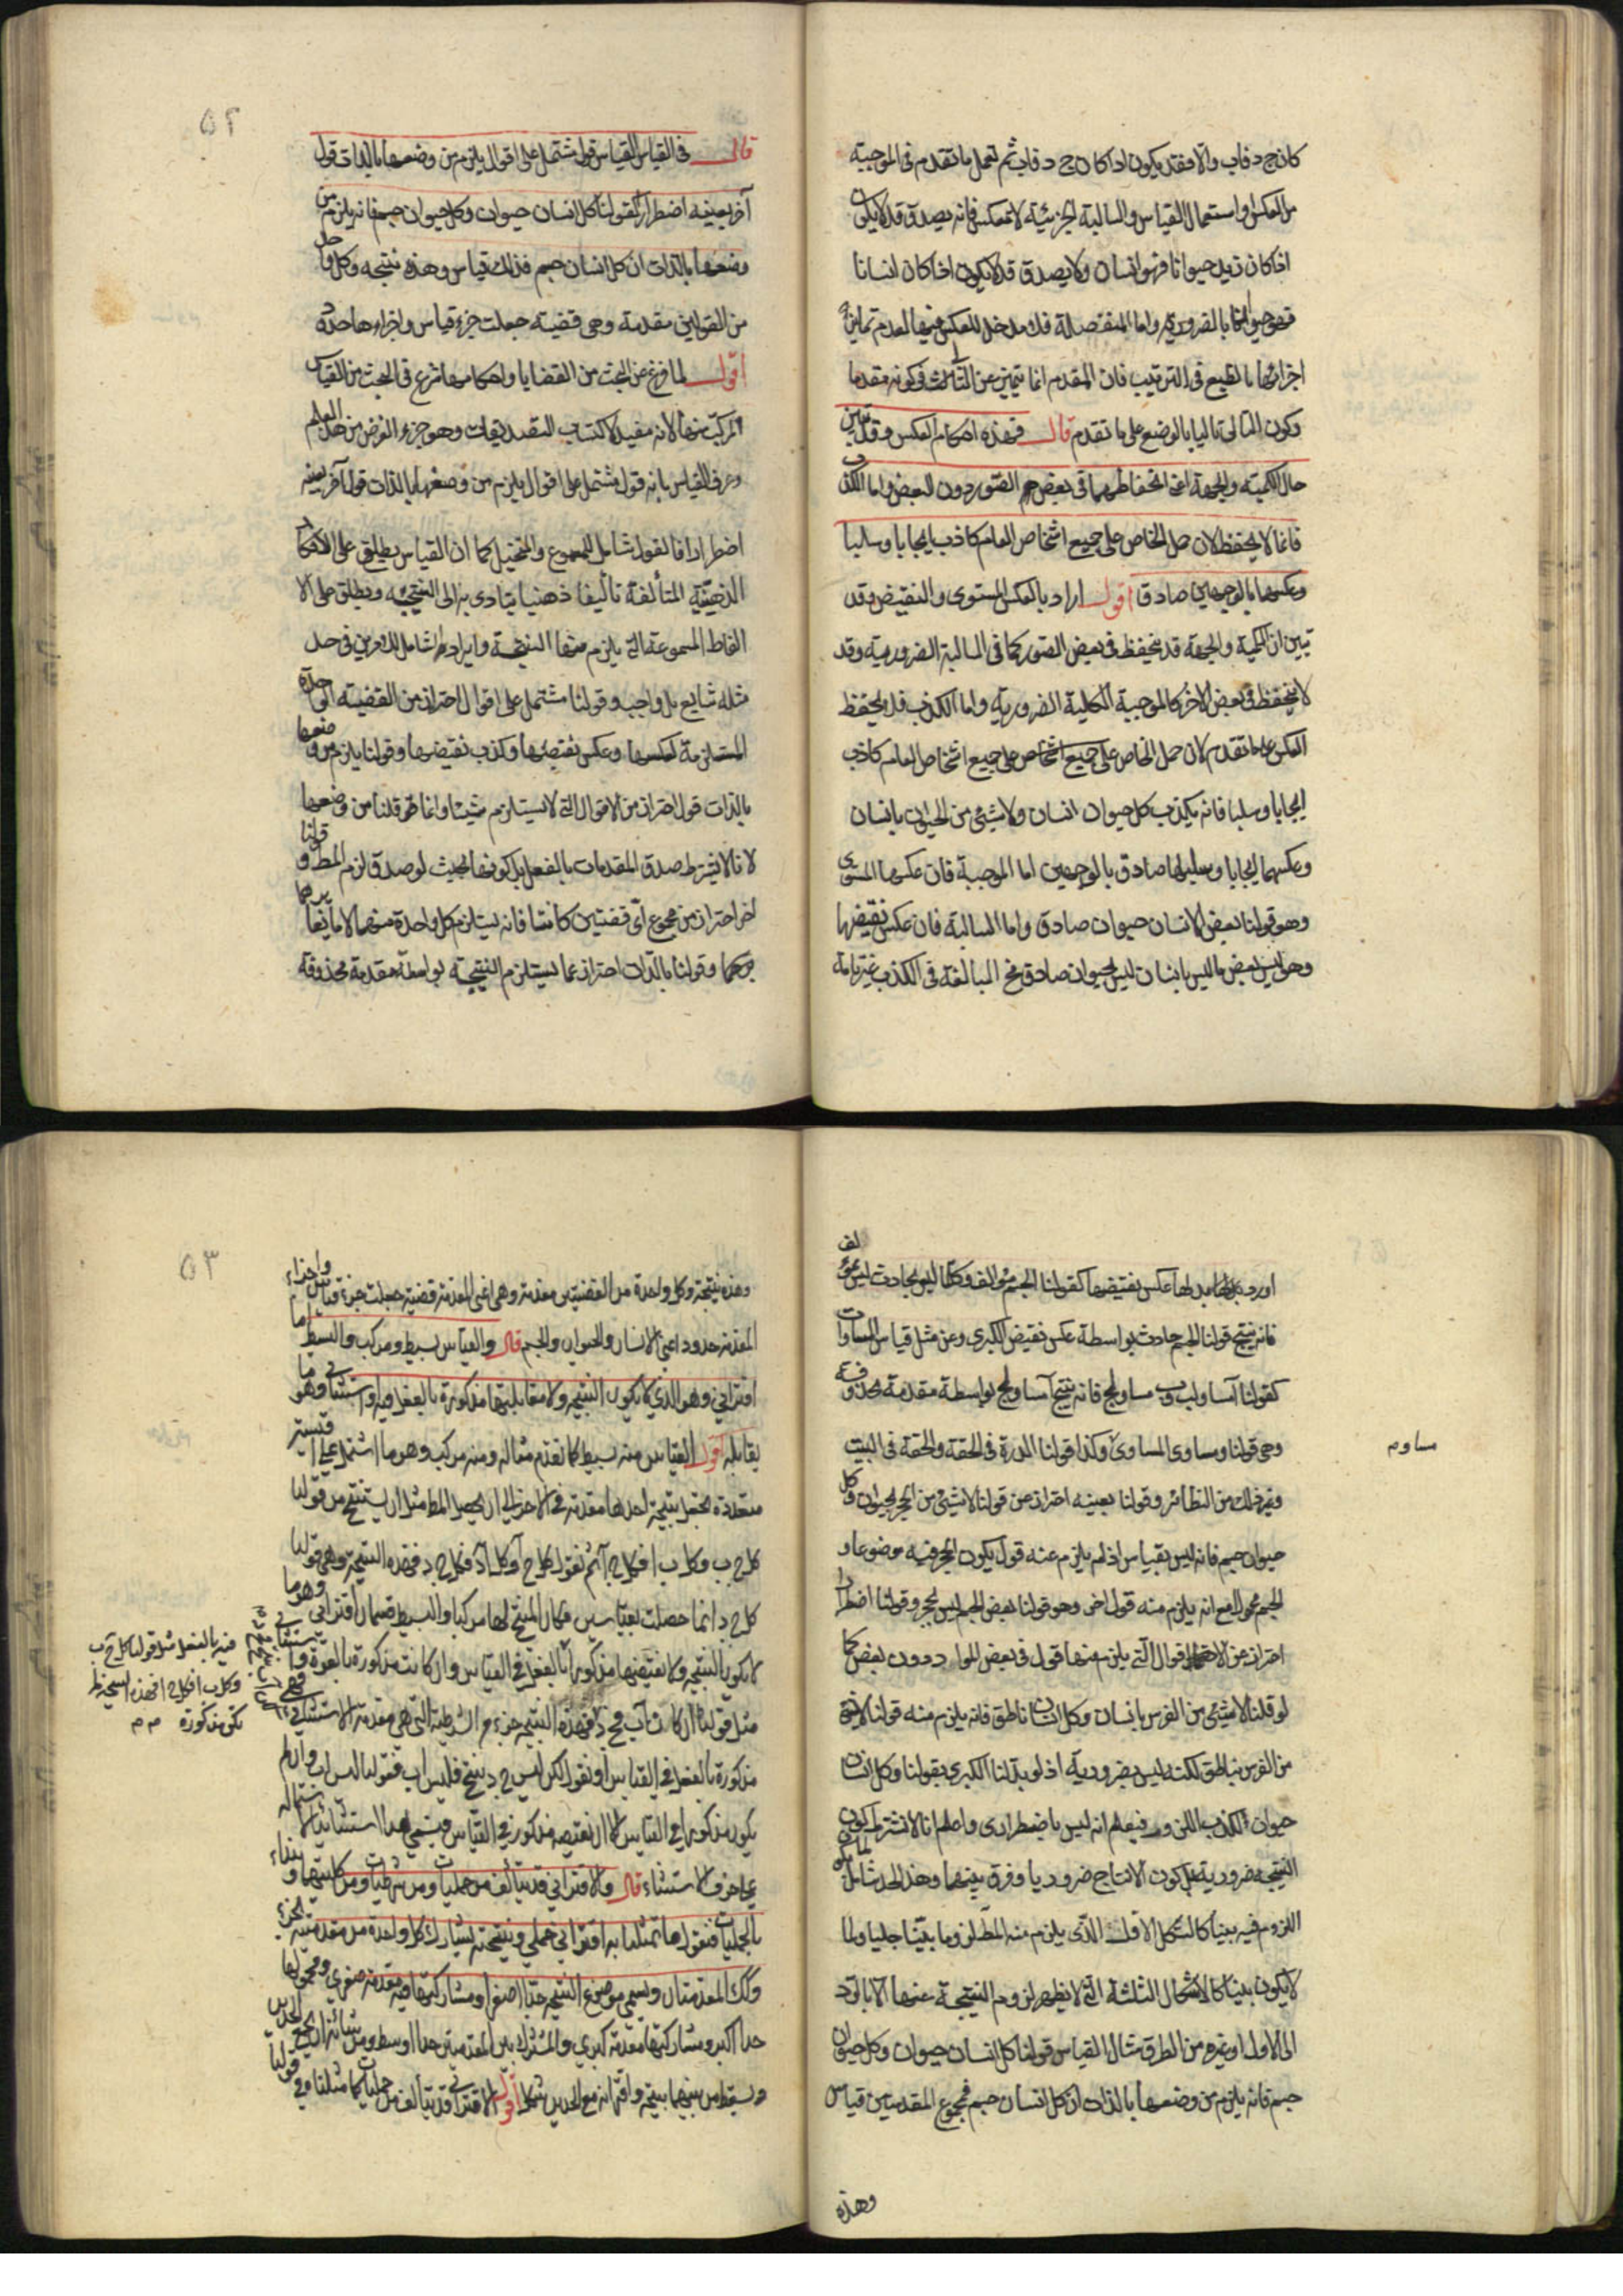 كان ج د فاب والا فقد يكون اذا كان ج د فاب ثم لنعمل ما تقدم فى الموجبة
من العكس او استعمال القياس والسالبة الجزئية لا تنعكس فانه يصدق قد لا يكون
اذا كان زيد حيوانا فهو انسان ولا يصدق قد لا يكون اذا كان انسانا
فهو حيوانا بالضرورة واما المنفصلة فلا مدخل للعكس فيها لعدم تمايز
اجزائها بالطبع فى الترتيب فان المقدم انما يتميز عن التالى فى كونه مقدما
وكون التالى تاليا بالوضع على ما تقدم قال فهذه احكام العكس وقد تبين
حال الكمية والجهة اعنى انحفاظهما فى بعض الصور دون البعض واما الكذب
فانما لا ينحفظ لان حمل الخاص على جميع اشخاص العام كاذب ايجابا وسلبا
وعكسهما بالوجهين صادق اقول اراد بالعكس المستوى والنقيض وقد
تبين ان الكمية والجهة قد ينحفظ فى بعض الصور كما فى السالبة الضرورية وقد
لا ينحفظ فى بعض الاخر كالموجبة الكلية الضرورية واما الكذب فلا ينحفظ
العكس على ما تقدم لان حمل الخاص على جميع اشخاص على جميع اشخاص العام كاذب
ايجابا وسلبا فانه يكذب كل حيوان انسان ولا شيئ من الحيوان بانسان
وعكسهما ايجابا وسلبا صادق بالوجهين اما الموجبة فان عكسها المستوى
وهو قولنا بعض الانسان حيوان صادق واما السالبة فان عكس نقيضها
وهو ليس بعض ما ليس بانسان ليس بحيوان صادق المبالغة فى الكذب غير تامة
٥٢
قال فى القياس القياس قول مشتمل على اقوال يلزم من وضعها بالذات قول
آخر بعينه اضطرارا كقولنا كل انسان حيوان وكل حيوان جسم فانه يلزم من
وضعهما بالذات ان كل انسان جسم فذلك قياس وهذه نتيجته وكل واحد
من القولين مقدمة وهى قضية جعلت جزء قياس واجزاءها حدود
اقول لما فرغ عن البحث من القضايا واحكامها شرع فى البحث من القياس
المركب منها لانه مفيد لاكتساب التصديقات وهو جزء الغرض من هذا العلم
وعرف القياس بانه قول مشتمل على اقوال يلزم من وضعها بالذات قول آخر بعينه
اضطرارا فالقول شامل للمسموع والمتخيل كما ان القياس يطلق على الافكار
الذهنية المتألفة تأليفا ذهنيا يتادى به الى النتيجة ويطلق على الا
لفاظ المسموعة التى يلزم منها النتيجة وايراد الشامل للامرين فى حد
مثله شايع بل واجب وقولنا مشتمل على اقوال احتراز من القضية الواحدة
المستلزمة لعكسها وعكس نقيضها وكذب نقيضها وقولنا يلزم من وضعها
بالذات قول احتراز من الاقوال التى لا يستلزم شيئا وانما قلنا من وضعها
لانا لا نشترط صدق المقدمات بالفعل بل كونها بحيث لو صدق لزم المط وقولنا
آخر احتراز من مجموع اى قضيتين كانتا فانه يستلزم كل واحدة منهما لا ما يغايرهما
وقولنا بالذات احتراز عما يستلزم النتيجة بواسطة مقدمة محذوفة
او رد بدلها عكس نقيضها كقولنا الجسم مؤلف وكل ما ليس بحادث ليس بمؤلف
فانه ينتج قولنا الجسم حادث بواسطة عكس نقيض الكبرى وعن مثل قياس المساوات
كقولنا آ مساو لب وب مساو لج فانه ينتج آ مساو لج بواسطة مقدمة محذوفة
وهى قولنا ومساوى المساوى وكذا قولنا الدرة فى الحقة والحقة فى البيت
مساوم
وغير ذلك من النظائر وقولنا بعينه احتراز عن قولنا لا شيئ من الحجر بحيوان وكل
حيوان جسم فانه ليس بقياس اذ لم يلزم عنه قول يكون الحجر فيه موضوعا و
الجسم محمولا مع انه يلزم منه قول اخر وهو قولنا بعض الجسم ليس بحجر وقولنا اضطرارا
احتراز عن الاقوال التى يلزم منها قول فى بعض المواد دون بعض كما
لو قلنا لا شيئ من الفرس بانسان وكل انسان ناطق فانه يلزم منه قولنا لا شيئ
من الفرس بناطق لكنه ليس بضرورية اذ لو بدلنا الكبرى بقولنا وكل انسان
حيوان لكذب اللزوم فيعلم انه ليس باضطرارى واعلم انا لا نشترط كون
النتيجة ضرورية بل كون الانتاج ضروريا وفرق بينهما وهذا الحد شامل لما يكون
اللزوم فيه بينا كالشكل الاول الذى يلزم منه المط لزوما بينا جليا ولما
لا يكون بينا كالاشكال الثلثة التى لا يظهر لزوم النتيجة عنها الا بالرد
الى الاول او غيره من الطرق مثال القياس قولنا كل انسان حيوان وكل حيوان
جسم فانه يلزم من وضعهما بالذات ان كل انسان جسم فمجموع المقدمتين قياس
وهذه
٥٣
وهذه نتيجة وكل واحدة من القضيتين مقدمة وهى اعنى المقدمة قضية جعلت جزء قياس واجزاء
المقدمة حدود اعنى الانسان والحيوان والجسم قال والقياس بسيط ومركب والبسيط اما
اقترانى وهو الذى لا يكون النتيجة ولا مقابلتها مذكورة بالفعل فيه او استثنائى وهو ما
يقابله اقول القياس منه بسيط كما تقدم مثاله ومنه مركب وهو ما اشتمل على اقيسة
متعددة يجعل نتيجة احدها مقدمة فى الآخر الى ان يحصل المط مثل ان يستنتج من قولنا
كل ج ب وكل ب ا فكل ج آ ثم نقول كل ج آ وكل آ د فكل ج د فهذه النتيجة وهى قولنا
كل ج د انما حصلت بقياسين فكان المنتج لها مركبا والبسيط قسمان اقترانى وهو ما
لا يكون النتيجة ولا نقيضها مذكورا بالفعل فى القياس وان كانت مذكورة بالقوة
فيه بالفعل مثل قولنا كل ج ب
وكل ب ا فكل ج ا فهذه النتيجة لم
تكن مذكورة
مثل قولنا ان كان آب فج د فهذه النتيجة جزء من الشرطية التى هى مقدمة الاستثنائى
مذكورة بالفعل فى القياس او نقول لكن ليس ج د ينتج فليس اب فقولنا ليس اب وان لم
يكن مذكورا فى القياس الا ان نقيضه مذكور فى القياس ويسمى هذا استثنائيا لاشتماله
على حرف الاستثناء قال والاقترانى قد يتألف من حمليات ومن شرطيات ومن كليتهما ونبداء
بالحمليات فنقول ما تمثلنا به اقترانى حملى ونتيجته يشارك كل واحدة من مقدمتيه بجزء
وكك المقدمتان ويسمى موضوع النتيجة حدا اصغر او مشاركتها فيه مقدمة صغرى ومحمولها
حدا اكبر ومشاركتها مقدمة كبرى والمشترك بين المقدمتين حدا اوسط ومن شانه ان يجمع الحدين
ويسقط من بينهما نتيجة واقترانه مع الحدين شكلا اقول الاقترانى قد يتألف من حمليات كما مثلنا فى قولنا